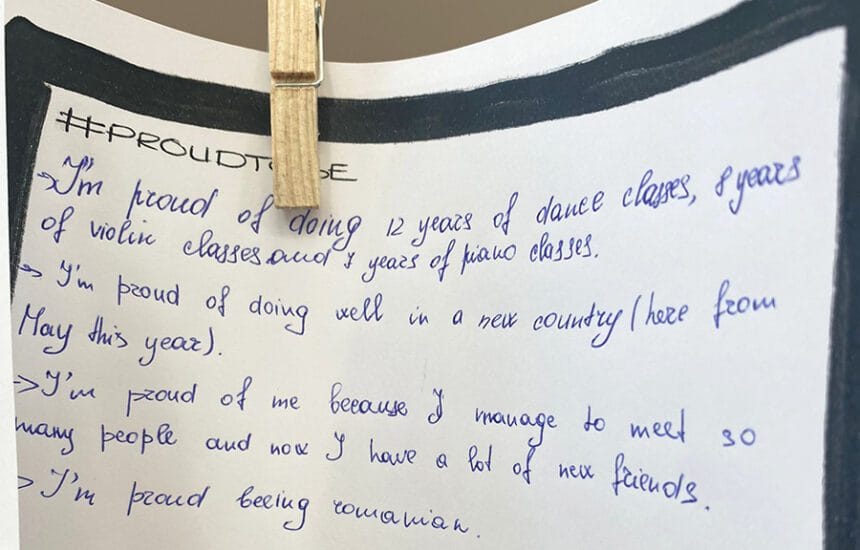 #PROUDTOBE
->I'm proud of doing 12 years of dance classes, 8 years
of violin classes and 7 years of piano classes.
-> I'm proud of doing well in a new country (here from
May this year).
->I'm proud of me because I manage to meet so
many people and now I have a lot of new friends.
-> I'm proud beeing romanian.